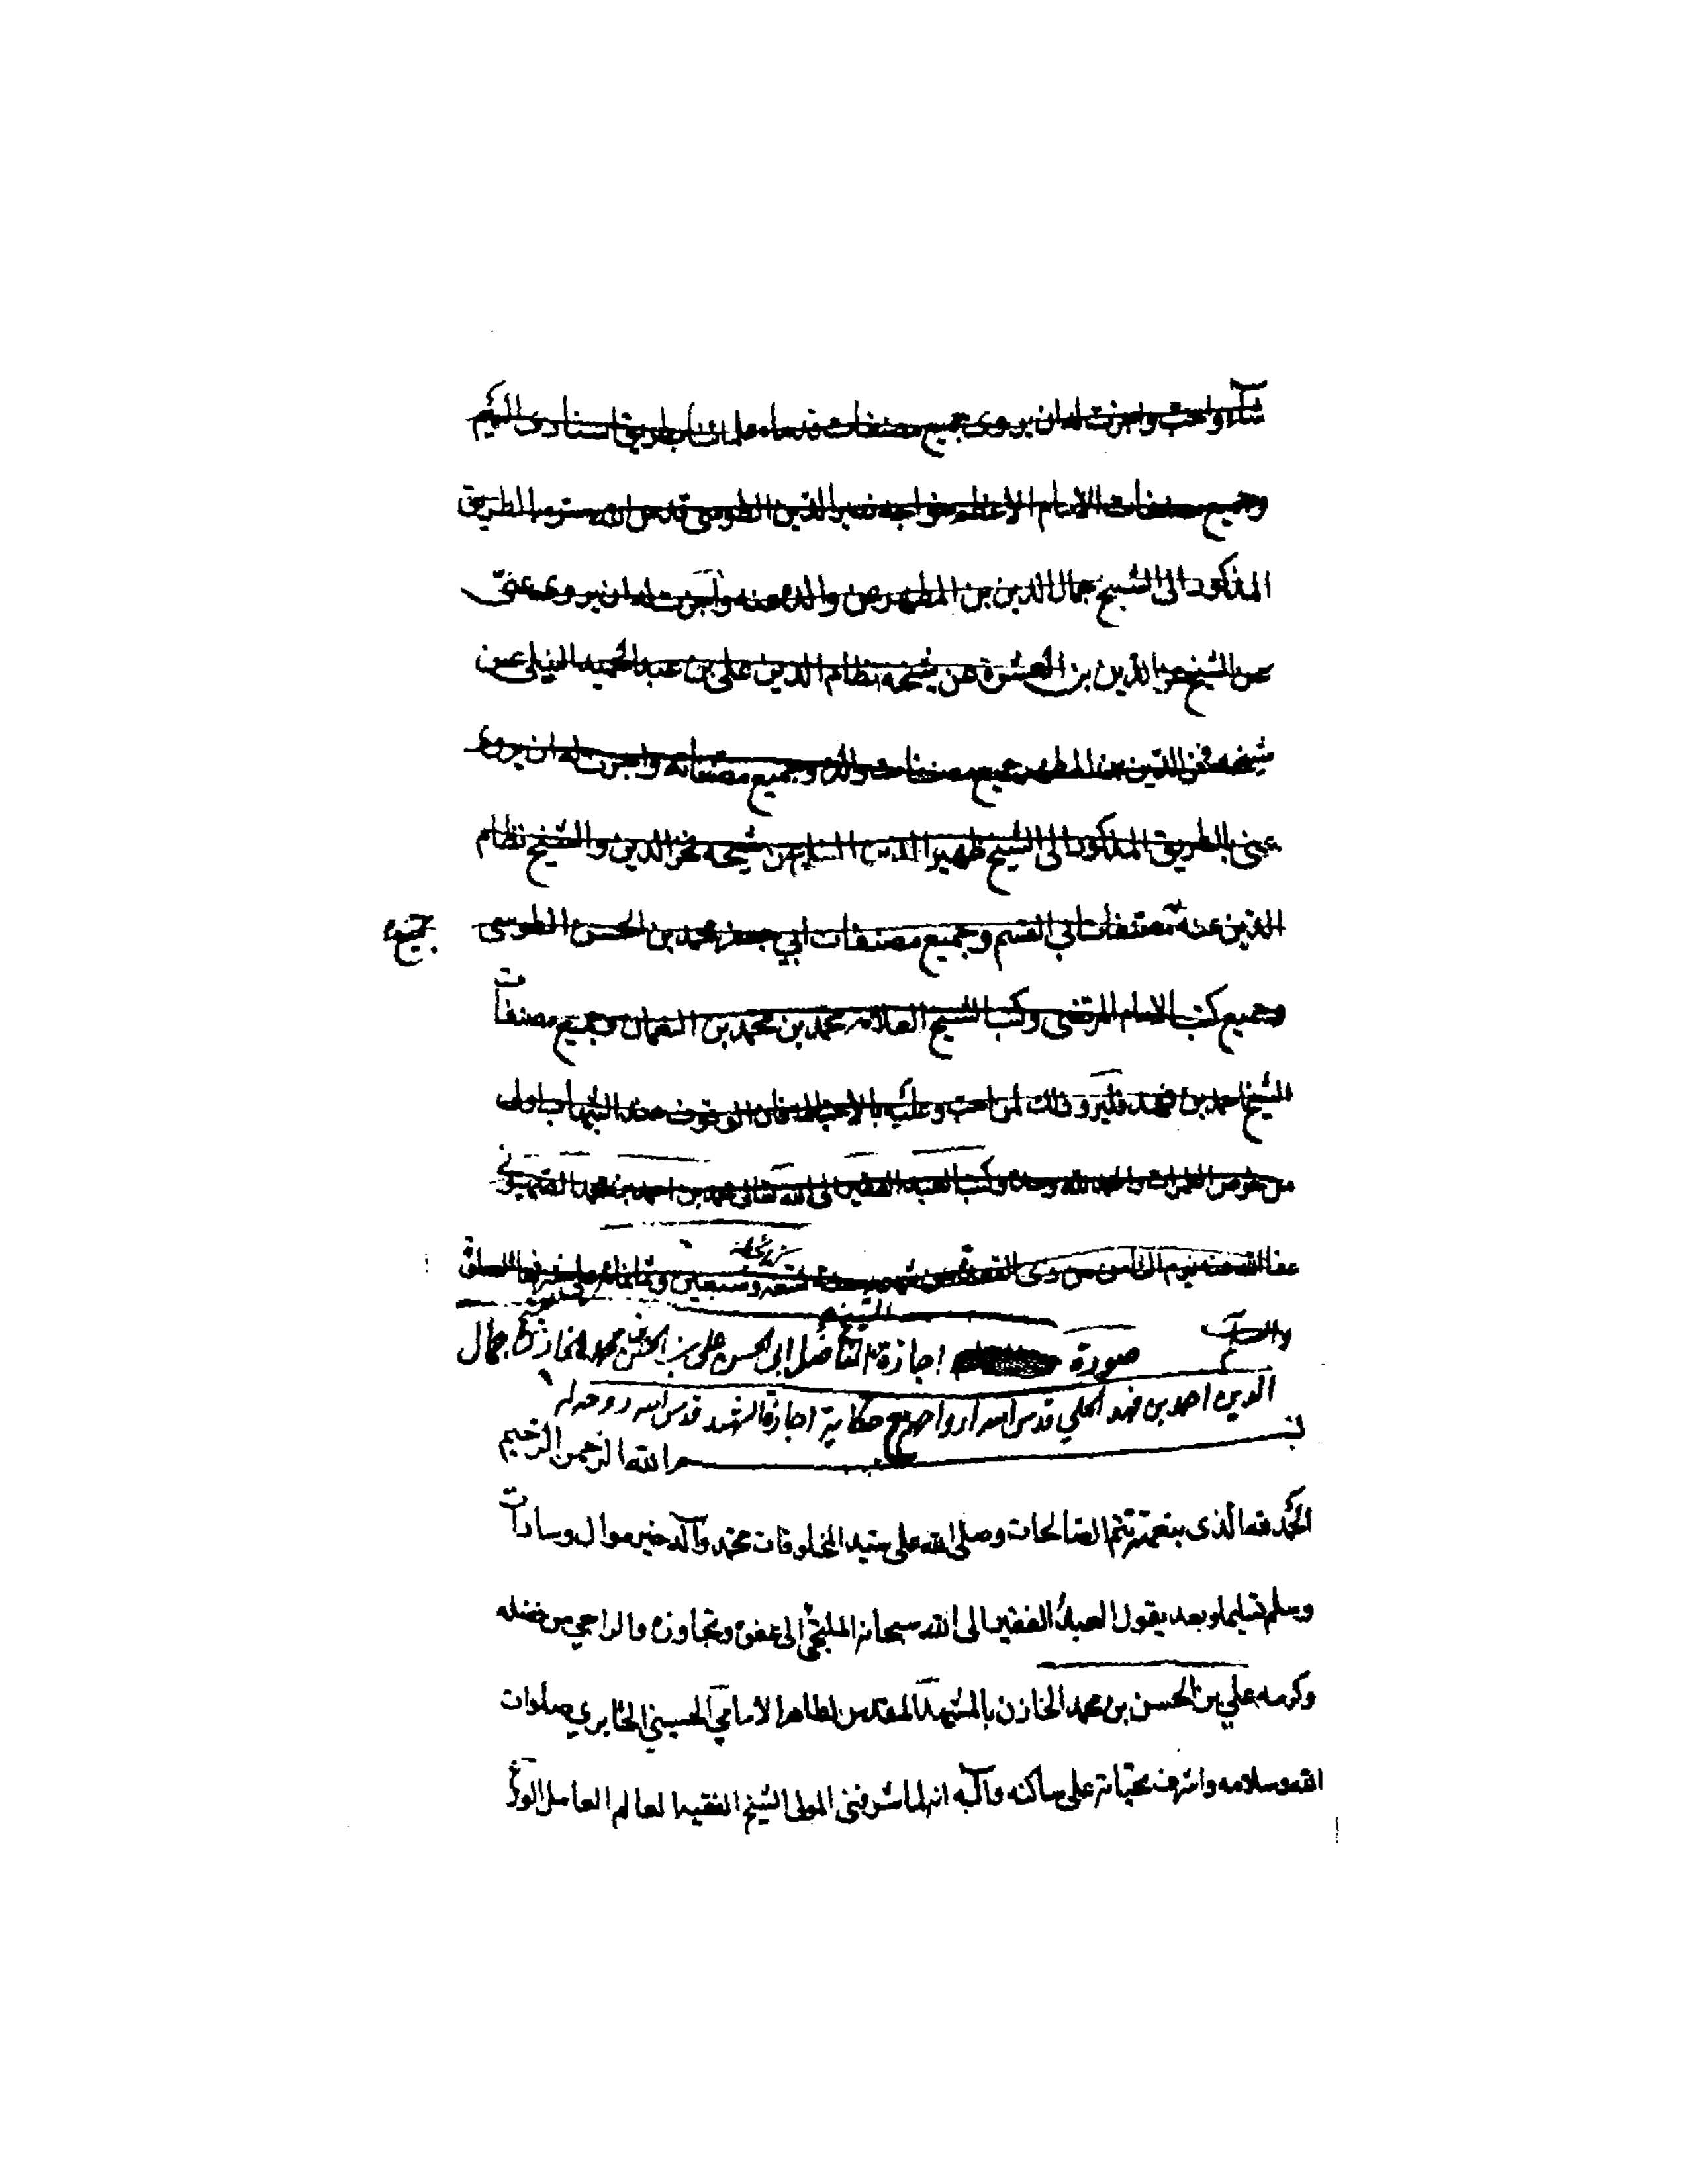 شاء واحب واجزت له ان يروى جميع مصنفات قدماء علمائنا بطريق اسنادى اليهم
وجميع مصنفات الامام الاعظم خواجه نصير الدين الطوسى قدس الله سره بالطريق
المذكور الى الشيخ جمال الدين بن المطهر عن والده عنه واجزت له ان يروى عنى
عن الشيخ عز الدين بن العشرة عن شيخه نظام الدين على بن عبد الحميد النيلى عن
شيخه فخر الدين بن المطهر جميع مصنفات والده وجميع مصنفاته واجزت له ان يروى
عنى بالطريق المذكور الى الشيخ ظهير الدين عن شيخه فخر الدين والشيخ نظام
الدين عنه مصنفات ابى القسم وجميع مصنفات ابي جعفر محمد بن الحسن الطوسى
جميع
وجميع كتب الامام المرتضى وكتب الشيخ العلامة محمد بن محمد بن النعمان وجميع مصنفات
الشيخ احمد بن فهد فليرو ذلك لمن احب وعليه بالاحتياط فان الوقوف عند الشبهات اولى
من خوض الظلمات والحمد لله وحده وكتب العبد الفقير الى الله تعالى محمد بن احمد بن محمد الصهيونى
عفا الله عنه يوم الثامن من ذى القعدة من شهور سنة تسعة وسبعين وثمانمائة على مشرفها الصلوة
والسلام
صورة اجازة الشيخ الفاضل ابى الحسن على بن الحسن بن محمد الخازن للشيخ جمال
الدين احمد بن فهد الحلي قدس الله ارواحهم مع حكاية اجازة الشهيد قدس الله روحه له
بسم الله الرحمن الرحيم
الحمد لله الذى بنعمته تتم الصالحات وصلى الله على سيد المخلوقات محمد وآله خير موال وسادات
وسلم تسليما وبعد يقول العبد الفقير الى الله سبحانه الملتجئ الى عفوه وتجاوزه والراجي من فضله
وكرمه علي بن الحسن بن محمد الخازن بالمشهد المقدس الطاهر الامامي الحسيني الحائري صلوات
الله وسلامه واشرف تحياته على ساكنه وآله انه لما شرفنى المولى الشيخ الفقيه العالم العامل الورع